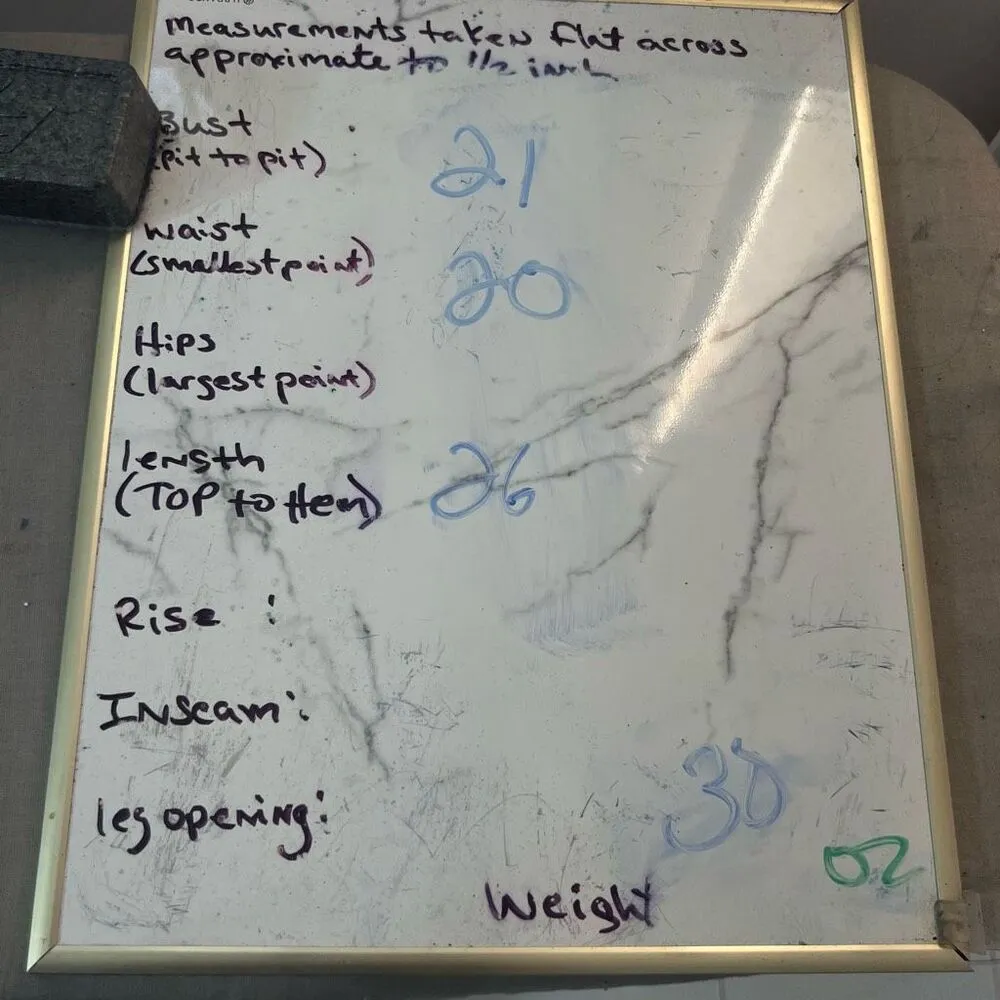 Measurements taken flat across
approximate to 1/2 inch
Bust
(pit to pit)
21
Waist
(smallest point)
20
Hips
(largest point)
length
(TOP to Hem)
26
Rise :
Inseam:
leg opening:
30
oz
Weight